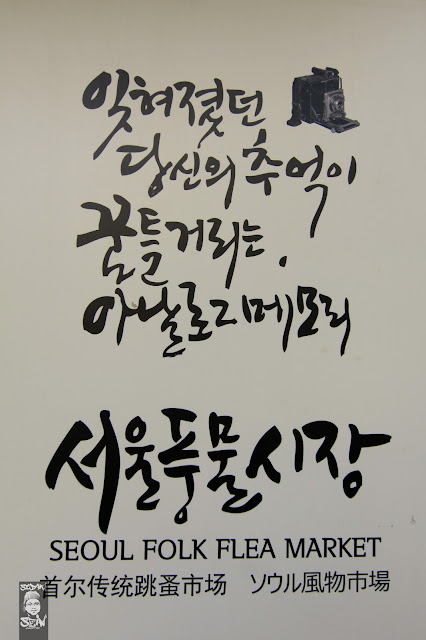 잊혀졌던
당신의 추억이
꿈틀거리는,
아날로그메모리
서울풍물시장
SEOUL FOLK FLEA MARKET
首尔传统跳蚤市场 ソウル風物市場
SEOUL
SEAN